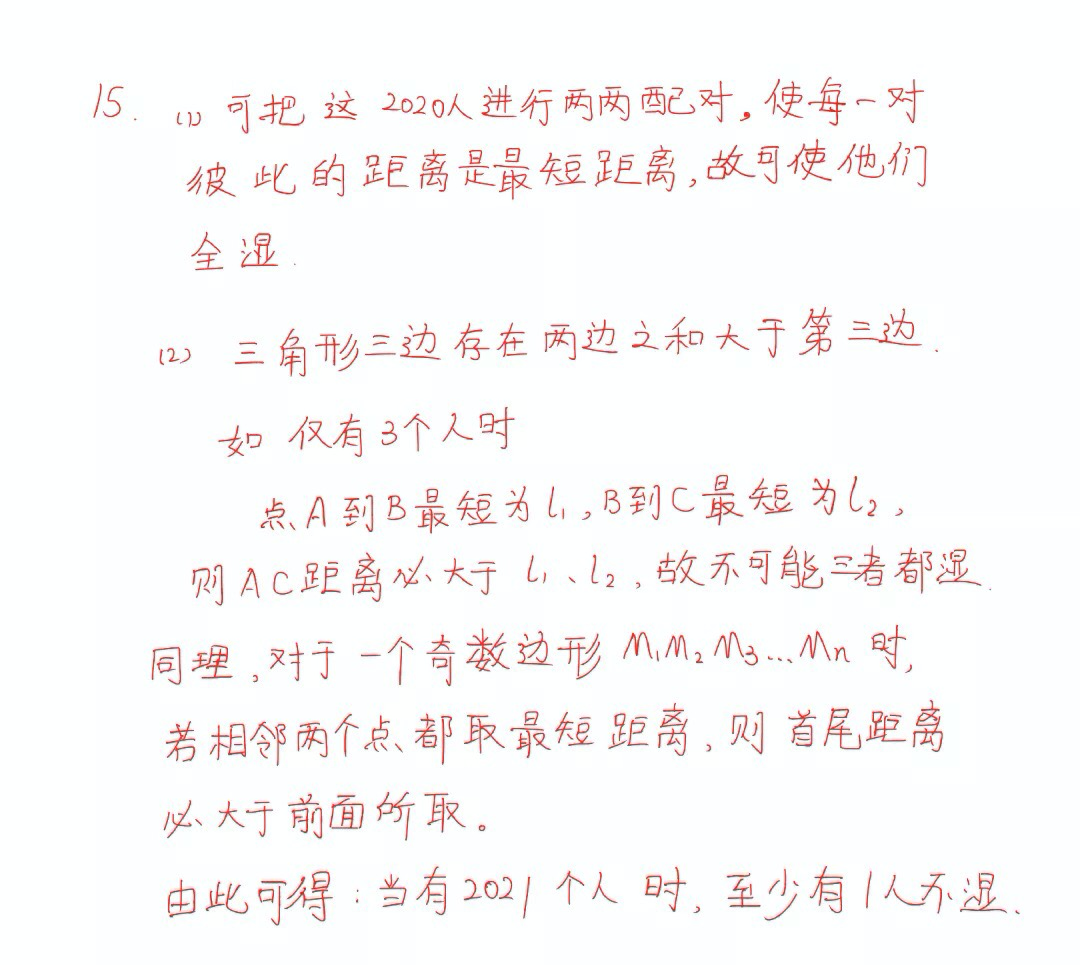 15. (1) 可把这2020人进行两两配对。使每一对
彼此的距离是最短距离,故可使他们
全湿.
(2) 三角形三边存在两边之和大于第三边.
如仅有3个人时
点A到B最短为l₁,B到C最短为l₂,
则AC距离必大于l₁、l₂,故不可能三者都湿.
同理,对于一个奇数边形M₁M₂M₃...Mn时,
若相邻两个点都取最短距离,则首尾距离
必大于前面所取。
由此可得:当有2021个人时,至少有1人不湿.